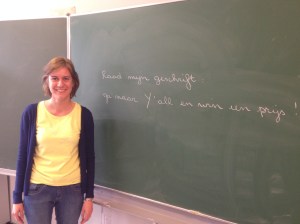 Raad mijn geschrift
op maar Y'all en win een prijs!